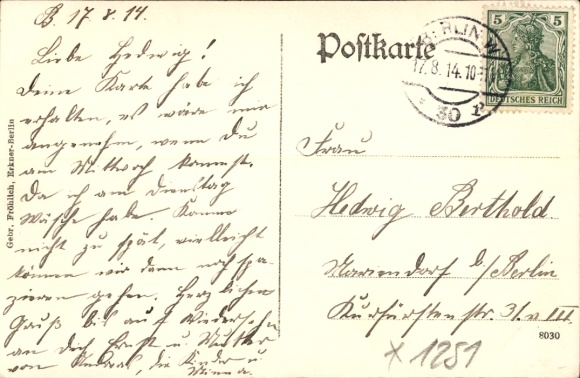 B. 17.8.14.
Liebe Hedwig!
Deine Karte habe ich
erhalten, es wäre mir
angenehm, wenn Du
am Mittwoch kommst.
Da ich am Dienstag
Wäsche habe. Komme
nicht zu spät, vielleicht
können wir dann noch spa-
zieren gehen. Herzlichen
Gruß bis auf Wiedersehn
an Dich Ernst u Mutter
von die Kinder u
Minna
Gebr. Fröhlich, Erkner-Berlin
Postkarte
BERLIN W
17.8.14.10-
* 30
5 5
DEUTSCHES REICH
Frau
Hedwig Berthold
Mariendorf b/Berlin
Kurfürstenstr. 31. v III
8030
x 1251